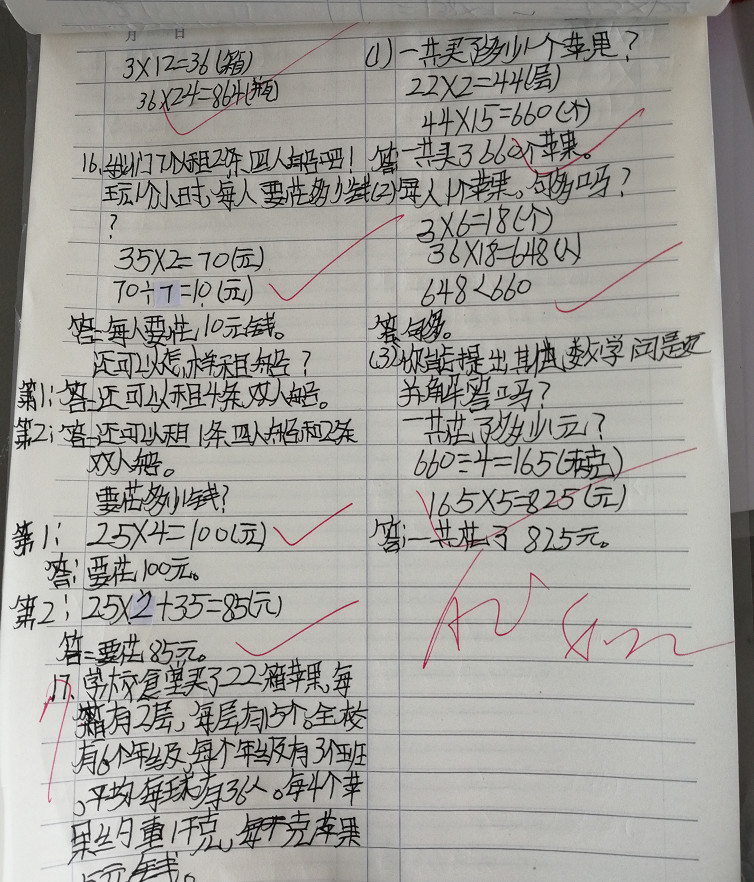 月 日
3×12=36(箱)
36×24=864(瓶)
16、我们7人租2条四人船吧!
玩1个小时,每人要花多少钱
?
35×2=70(元)
70÷7=10(元)
答:每人要花10元钱。
还可以怎样租船?
第1:答:还可以租4条双人船。
第2:答:还可以租1条四人船和2条
双人船。
要花多少钱?
第1:25×4=100(元)
答:要花100元。
第2:25×2+35=85(元)
答:要花85元。
17、学校食堂买了22箱苹果,每
箱有2层,每层有15个。全校
有6个年级,每个年级有3个班
,平均每班有36人。每4个苹
果约重1千克,每千克苹果
5元钱。
(1)一共买了多少个苹果?
22×2=44(层)
44×15=660(个)
答一共买了660个苹果。
(2)每人1个苹果。够吗?
3×6=18(个)
36×18=648(人)
648<660
答够。
(3)你能提出其他数学问题
并解答吗?
一共花了多少元?
660÷4=165(千克)
165×5=825(元)
答:一共花了825元。
优 9.22